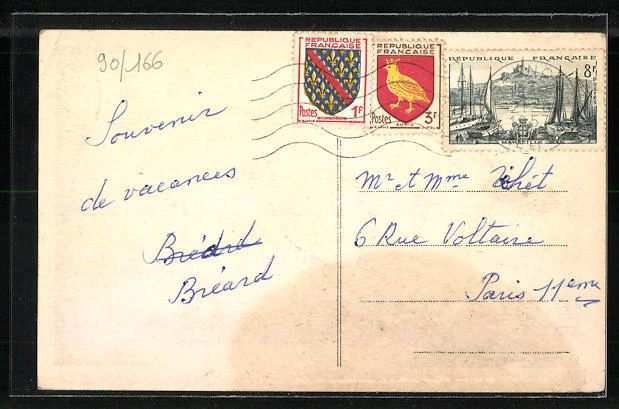 90/166
REPUBLIQUE FRANÇAISE
Postes 1F
BOURBONNAIS
REPUBLIQUE FRANÇAISE
Postes 3F
AUNIS
RÉPUBLIQUE FRANÇAISE
8F
POSTES
MARSEILLE
Souvenir
de vacances
Bréard
Bréard
Mr et Mme
6 Rue Voltaire
Paris 11eme